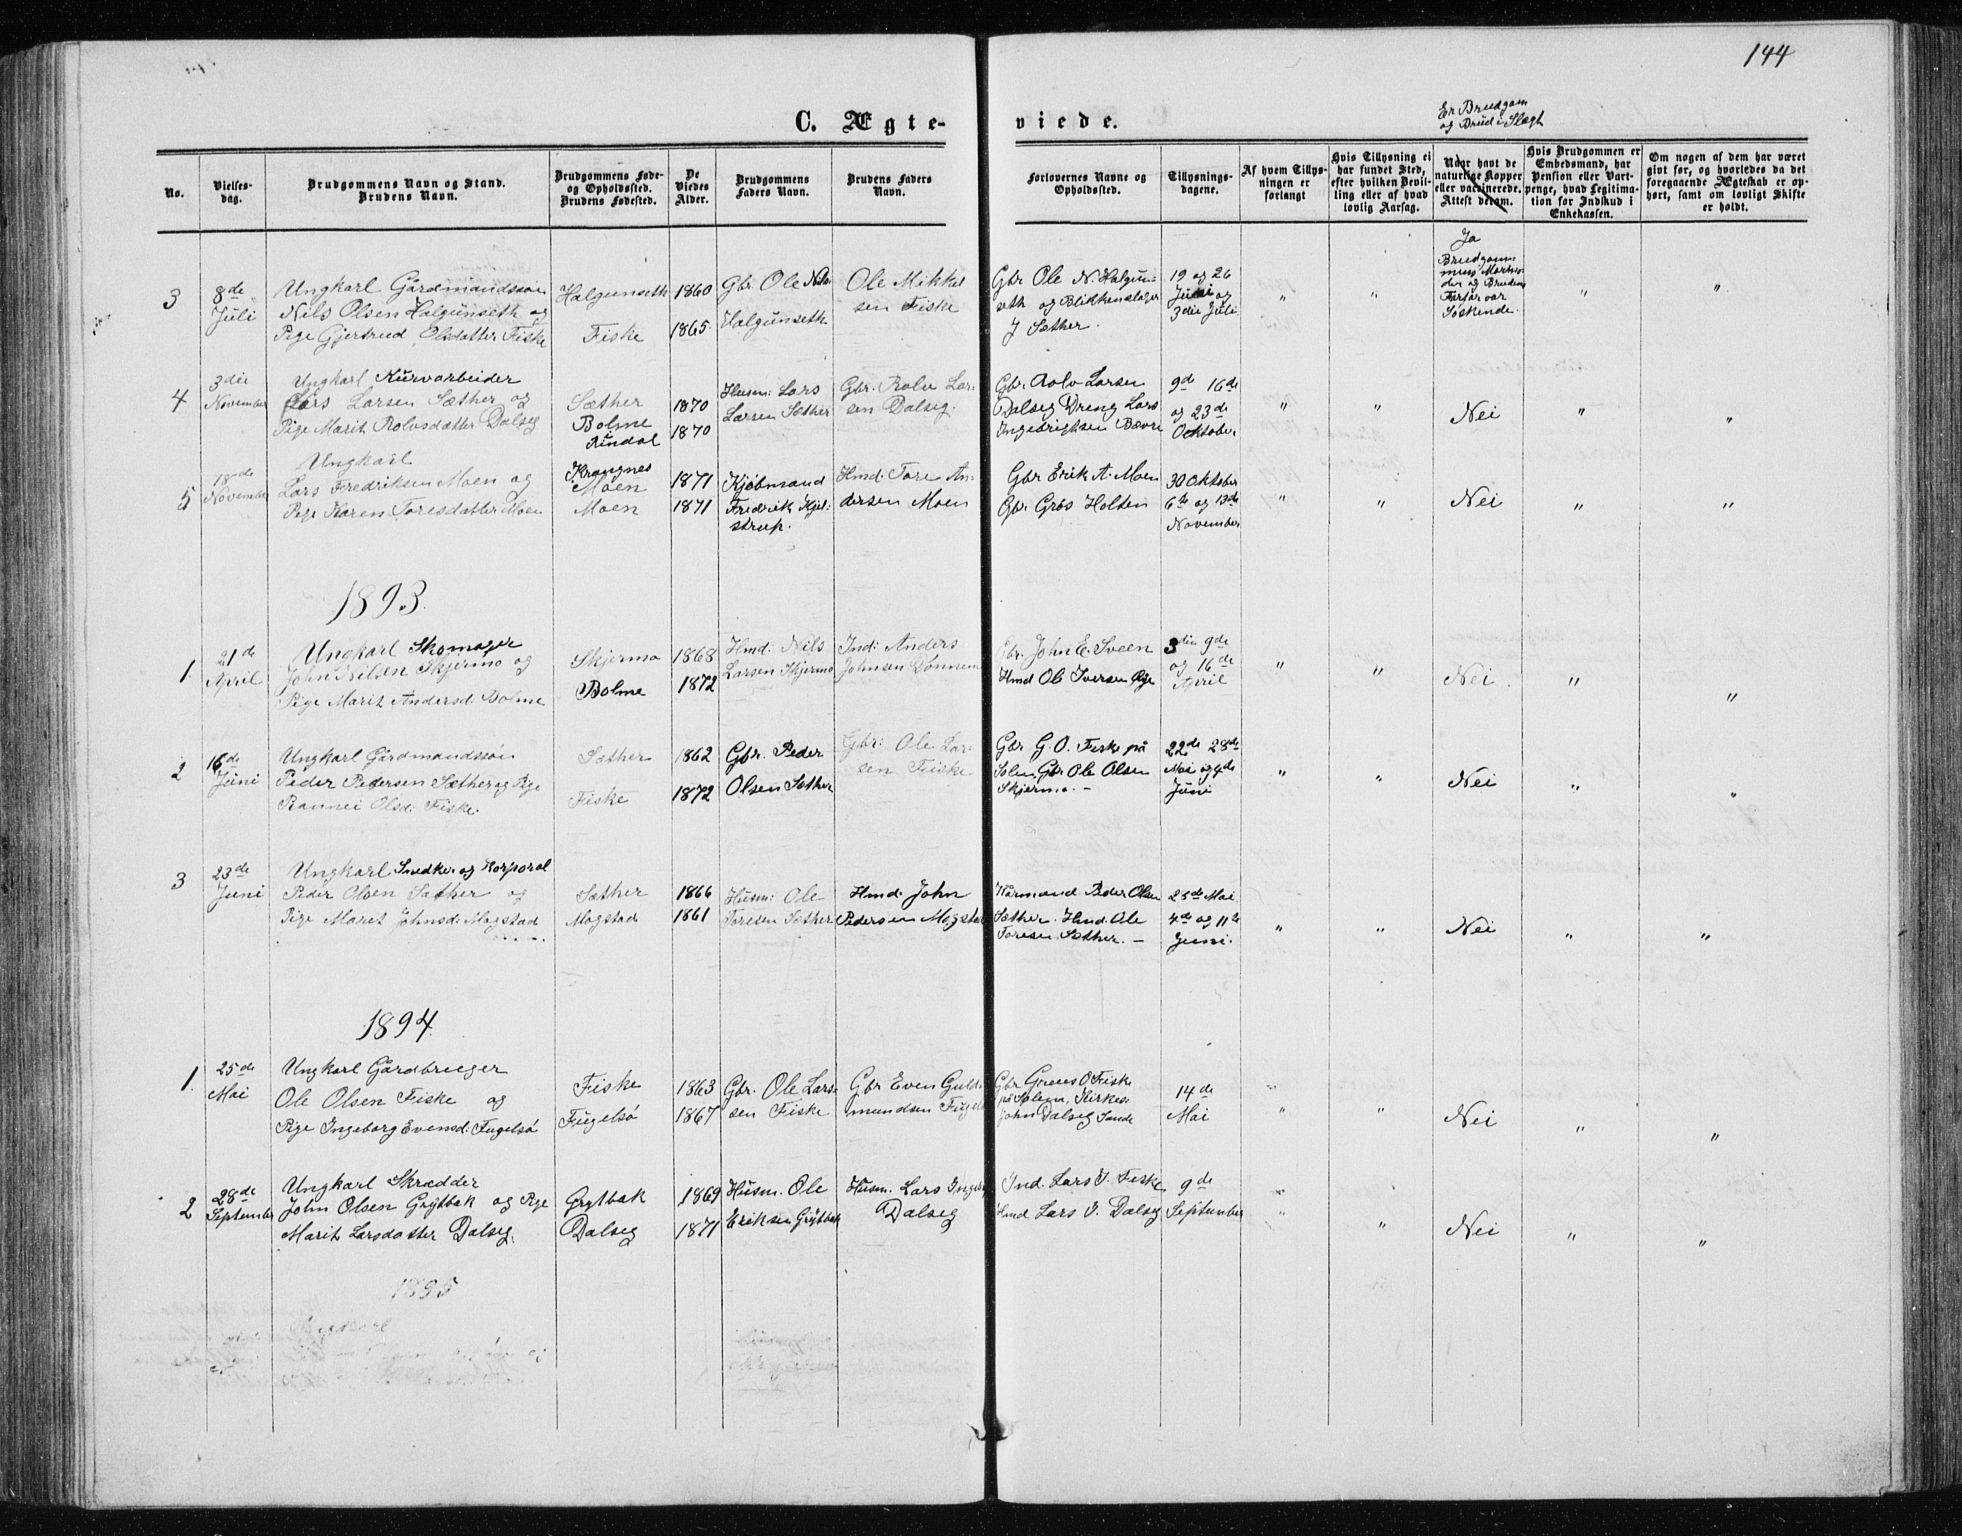 144
C. Ægte-
viede.
Er Brudgom
og Brud i Slægt
No.
Vielses-
dag.
Brudgommens Navn og Stand.
Brudens Navn.
Brudgommens Føde-
og Opholdssted.
Brudens Fødested.
De
Viedes
Alder.
Brudgommens
Faders Navn.
Brudens Faders
Navn.
Forlovernes Navne og
Opholdssted.
Tillysnings-
dagene.
Af hvem Tillys-
ningen er
forlangt
Hvis Tillysning ei
har fundet Sted,
efter hvilken Bevil-
ling eller af hvad
lovlig Aarsag.
Naar havt de
naturlige Kopper
eller vaccinerede.
Attest derom.
Hvis Brudgommen er
Embedsmand, har
Pension eller Vart-
penge, hvad Legitima-
tion for Indskud i
Enkekassen.
Om nogen af dem har været
givt før, og hvorledes da det
foregaaende Ægteskab er op-
hørt, samt om lovligt Skifte
er holdt.
3
8de
Juli
Ungkarl Gårdmandssøn
Nils Olsen Halgunseth og
Pige Gjertrud Olsdatter Fiske
Halgunseth
Fiske
1860
1865
Gbr. Ole Nils
Halgunseth
Ole Mikkel
sen Fiske
Gbr Ole N. Halgun-
seth og Blikkenslager
J Sæther.
19 og 26
Juni og
3die Juli
"
"
Ja
Brudgom
mens
der og Brudens
Farfar var
Søskende.
"
"
4
3die
November
Ungkarl Kurvarbeider
Lars Larsen Sæther og
Pige Marit Rolvsdatter Dalseg
Sæther
Bolme
Rindal
1870
1870
Husm: Lars
Larsen Sæther
Gbr. Rolv Lar-
sen Dalseg.
Gbr. Rolv Larsen
Dalseg Dreng Lars
Ingebrigtsen Bævre
9de 16de
og 23de
Oktober
"
"
Nei
"
"
5
18de
November
Ungkarl
Lars Fredriksen Moen og
Pige Karen Toresdatter Moen
Krangnes
Moen
Moen
1871
1871
Kjøbmand
Fredrik Kjel-
strup.
Hmd: Tore An
dersen Moen
Gbr Erik A. Moen
Gbr Grös Holten
30 Oktober
6te og 13de
November
"
"
Nei
"
"
1893.
1.
21de
April
Ungkarl Skomager
John Nilsen Skjermo og
Pige Marit Andersd: Bolme
Skjermo
Bolme
1868
1872
Hmd: Nils
Larsen Skjermo
Ind: Anders
Johnsen Dønnem
Gbr. John E. Sveen
Hmd Ole Iversen Øye
3die 9de
og 16de
April
"
"
Nei.
"
"
2
16de
Juni
Ungkarl Gårdmandssøn
Peder Pedersen Sæther og Pige
Rannei Olsd: Fiske.
Sæther
Fiske
1862
1872
Gbr. Peder
Olsen Sæther
Gbr: Ole Lar-
sen Fiske
Gbr G. O. Fiske på
Solem Gbr Ole Olsen
Skjermo. –
22de 28de
Mai og 4de
Juni
"
"
Nei
"
"
3
23de
Juni
Ungkarl Snedker og Korporal
Peder Olsen Sæther og
Pige Marit Johnsd: Mogstad
Sæther
Mogstad
1866
1861
Husm: Ole
Toresen Sæther
Hmd: John
Pedersen Mogstad
Kårmand Peder Olsen
Sæther. Hmd. Ole
Toresen Sæther. –
25de Mai
4de og 11te
Juni.
"
"
Nei
"
"
1894.
1.
25de
Mai
Ungkarl Gårdbruger
Ole Olsen Fiske og
Pige Ingeborg Evensd: Fugelsø
Fiske
Fugelsø
1863
1867
Gbr. Ole Lars-
sen Fiske
Gbr Even Guld-
mundsen Fugelsø
Gbr Greus O Fiske
på Solem, Kirkes:
John Dalseg Sande
14de
Mai
"
"
Nei
"
"
2
28de
September
Ungkarl Skrædder
John Olsen Grytbak og Pige
Marit Larsdatter Dalseg.
Grytbak
Dalseg
1869
1871
Husm. Ole
Eriksen Grytbak
Husm. Lars Ingebr
Dalseg
Ind. Lars J. Fiske
Hmd Lars I. Dalseg
9de
September
"
"
Nei
"
"
1895
Ungkarl